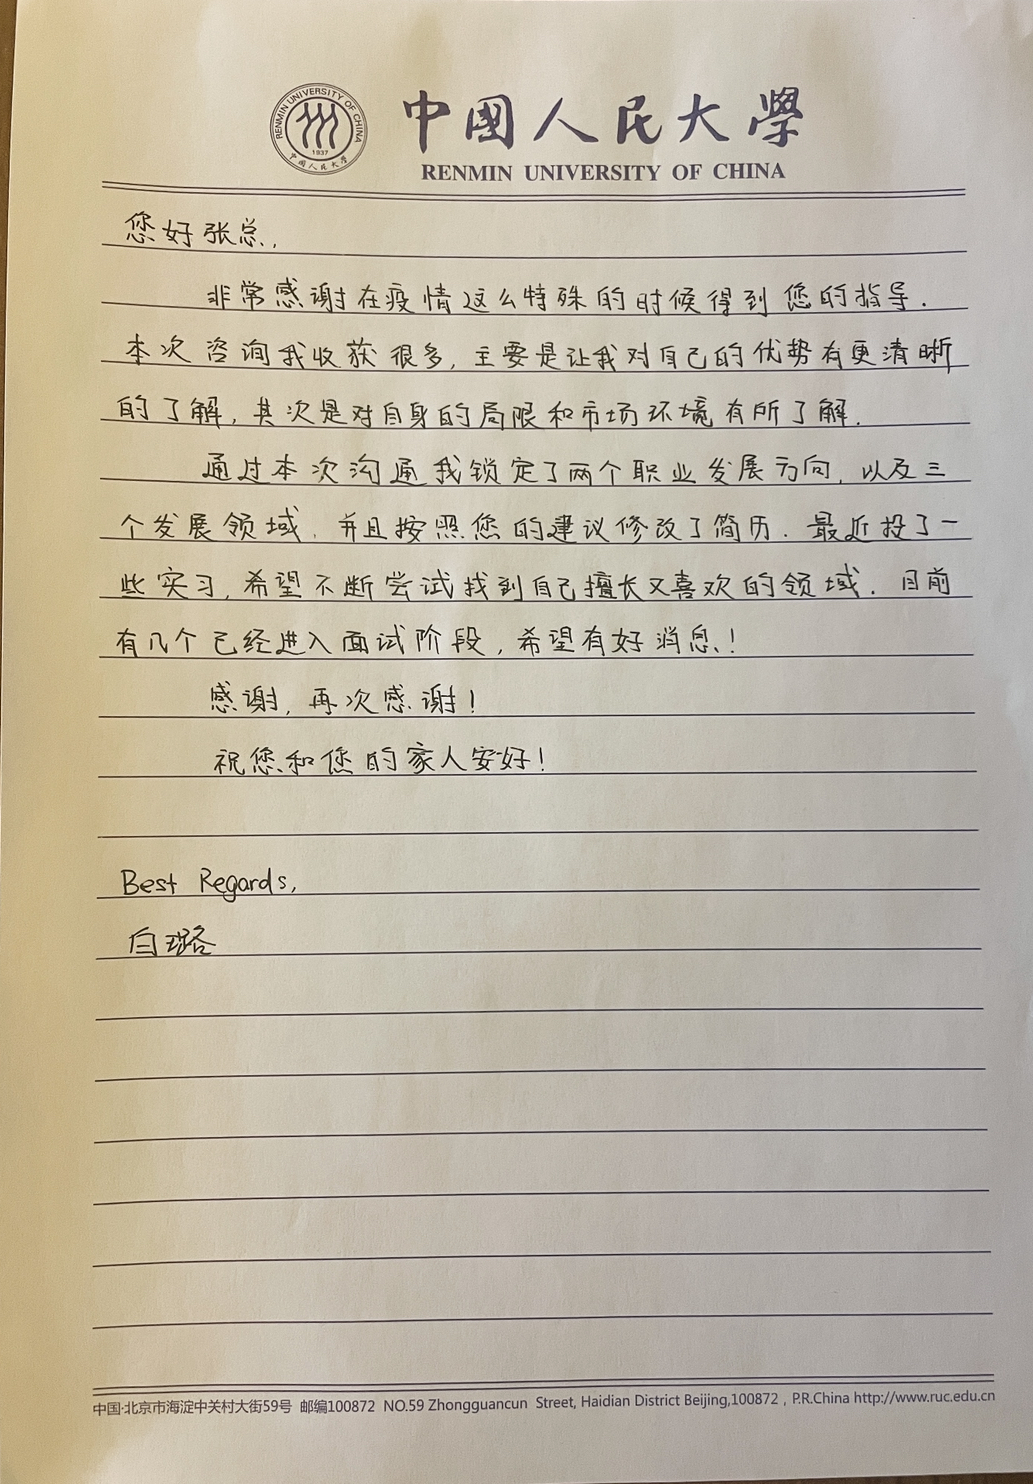 RENMIN UNIVERSITY OF CHINA
1937
中国人民大学
中國人民大學
RENMIN UNIVERSITY OF CHINA
您好张总,
非常感谢在疫情这么特殊的时候得到您的指导.
本次咨询我收获很多,主要是让我对自己的优势有更清晰
的了解,其次是对自身的局限和市场环境有所了解.
通过本次沟通我锁定了两个职业发展方向,以及三
个发展领域,并且按照您的建议修改了简历.最近投了一
些实习,希望不断尝试找到自己擅长又喜欢的领域.目前
有几个已经进入面试阶段,希望有好消息!
感谢,再次感谢!
祝您和您的家人安好!
Best Regards,
白璐
中国·北京市海淀中关村大街59号 邮编100872 NO.59 Zhongguancun Street, Haidian District Beijing,100872 , P.R.China http://www.ruc.edu.cn